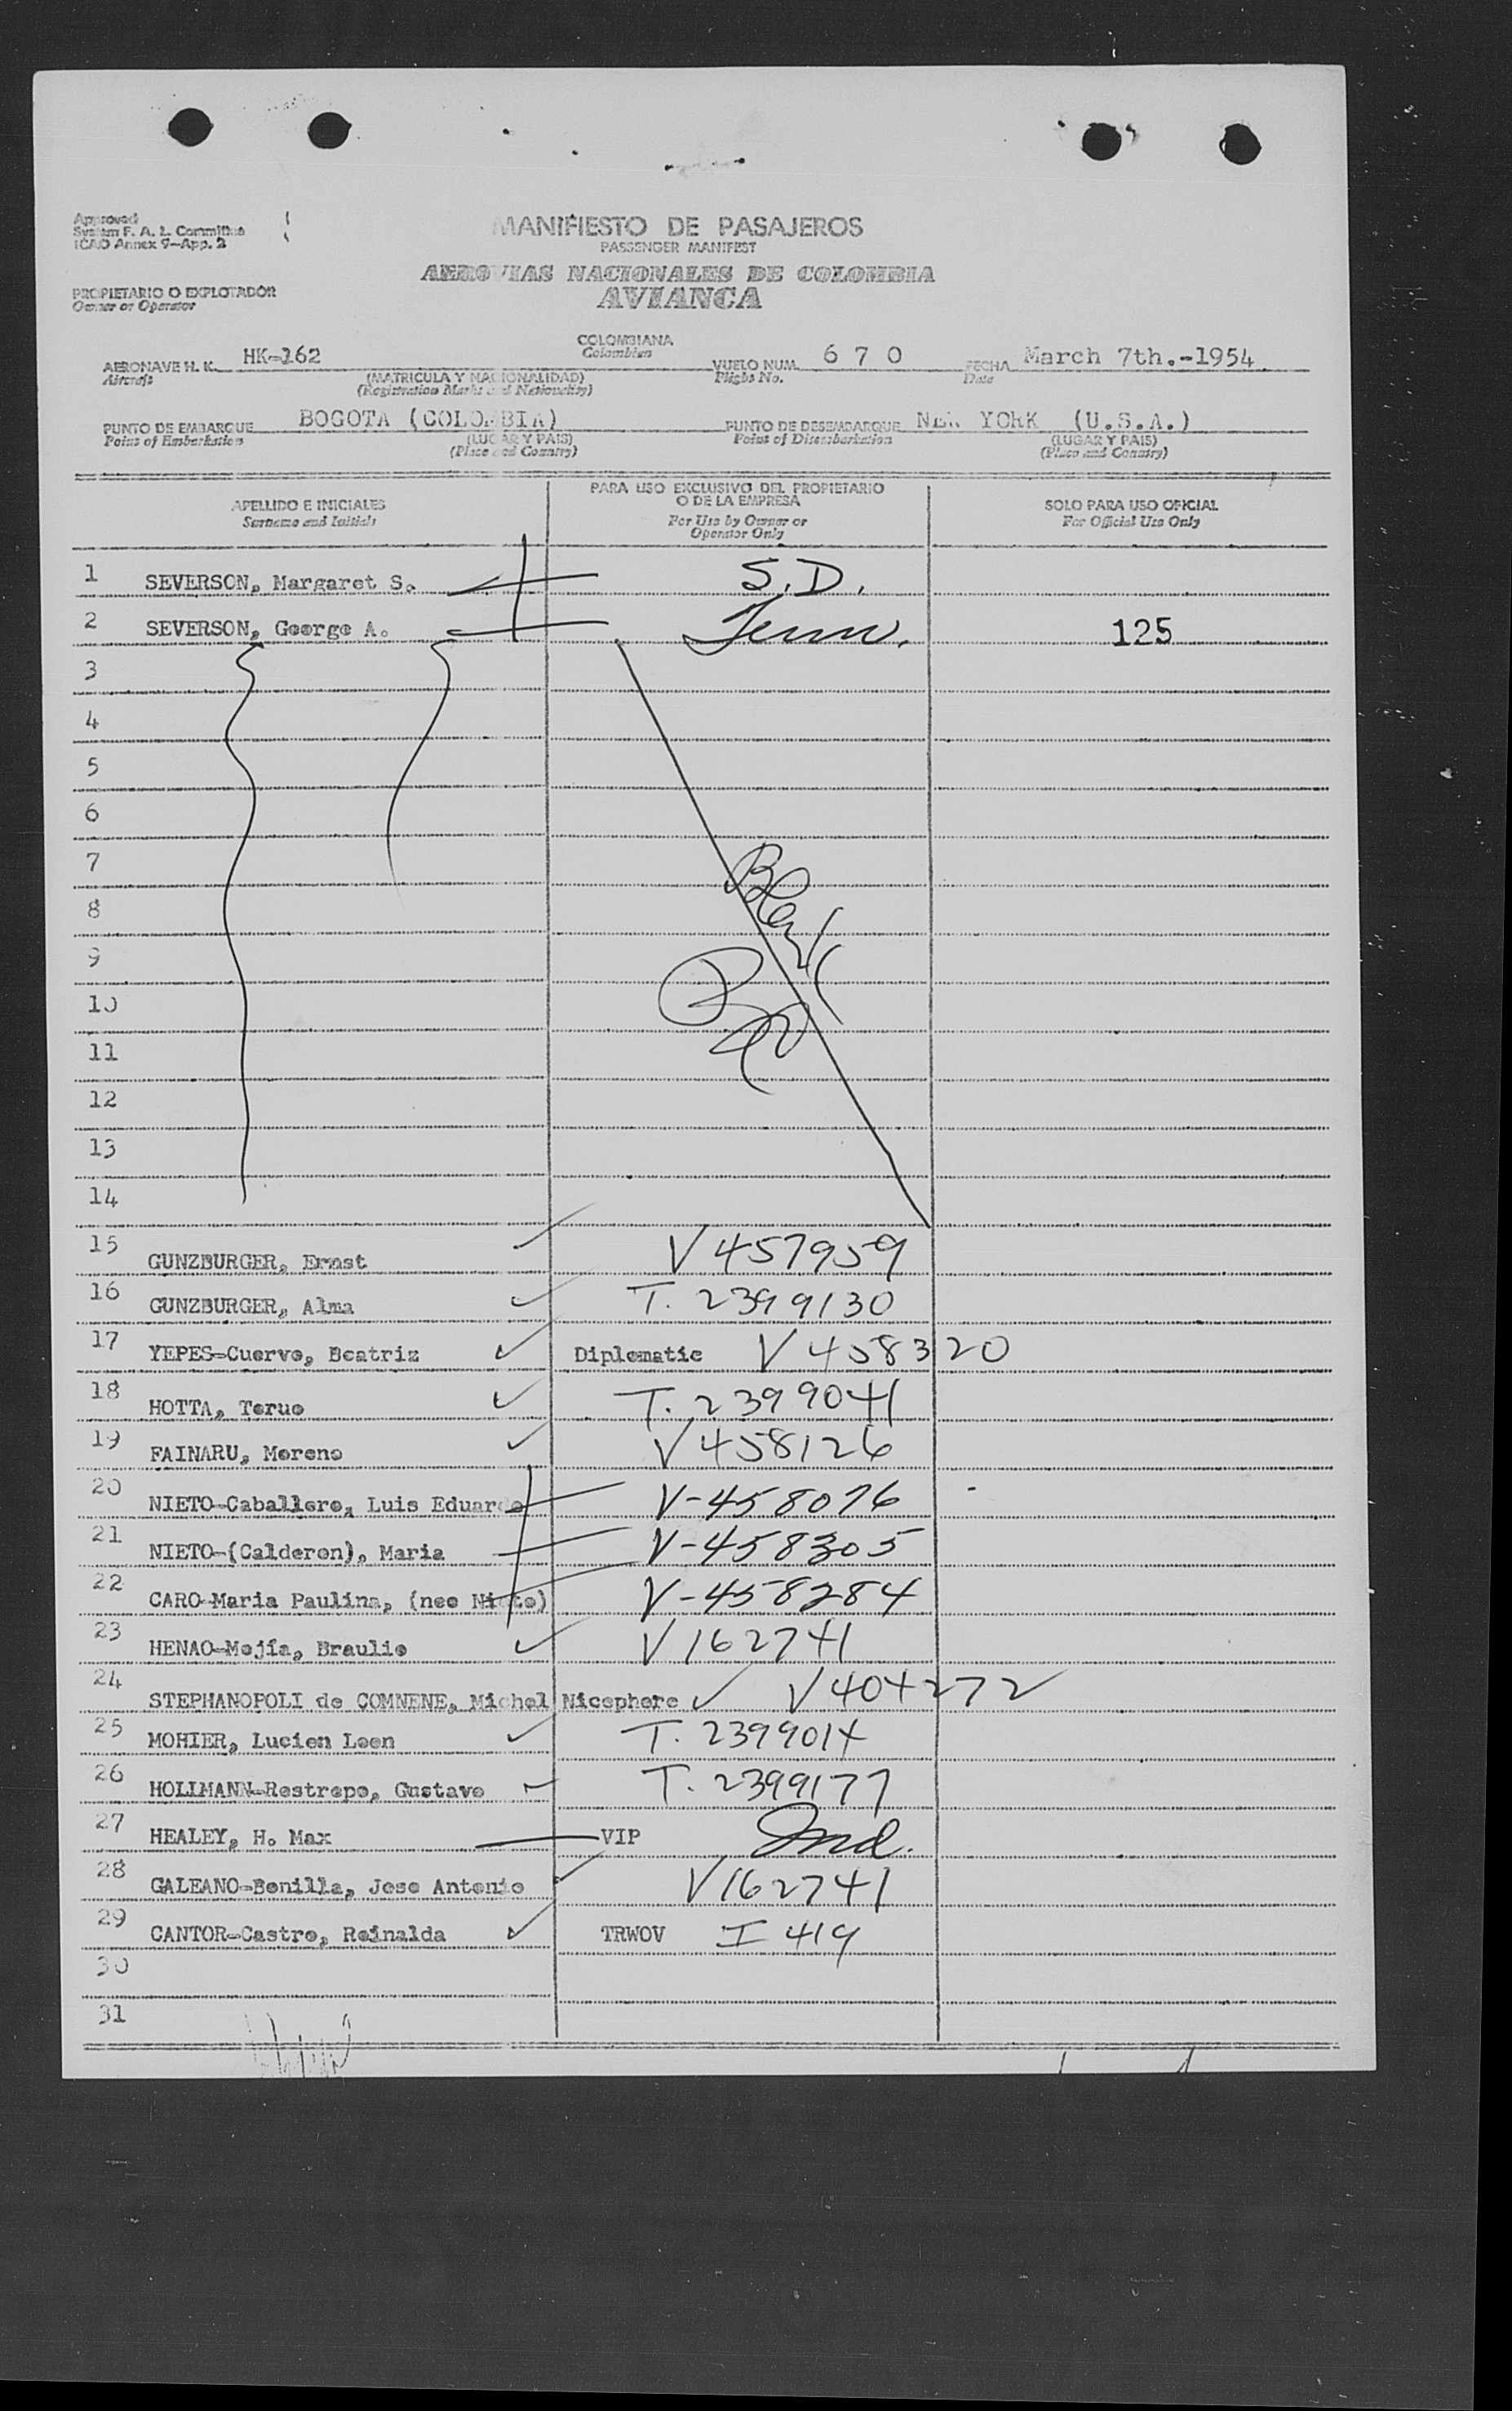 Approved
System F. A. L. Committee
ICAO Annex 9-App. 2
MANIFIESTO DE PASAJEROS
PASSENGER MANIFEST
AEROVIAS NACIONALES DE COLOMBIA
AVIANCA
PROPIETARIO O EXPLOTADOR
Owner or Operator
AERONAVE H. K. HK-162 COLOMBIANA VUELO NUM. 6 7 0 FECHA March 7th.-1954
Aircraft Colombian Flight No. Date
(MATRICULA Y NACIONALIDAD)
(Registration Marks and Nationality)
PUNTO DE EMBARQUE BOGOTA (COLOMBIA) PUNTO DE DESEMBARQUE NEW YORK (U.S.A.)
Point of Embarkation (LUGAR Y PAIS) Point of Disembarkation (LUGAR Y PAIS)
(Place and Country) (Place and Country)
APELLIDO E INICIALES
Surname and Initials
PARA USO EXCLUSIVO DEL PROPIETARIO
O DE LA EMPRESA
For Use by Owner or
Operator Only
SOLO PARA USO OFICIAL
For Official Use Only
1 SEVERSON, Margaret S. S.D.
2 SEVERSON, George A. Tenn. 125
3
4
5
6
7
8
9
10
11
12
13
14
Blank
15 GUNZBURGER, Ernst V 457959
16 GUNZBURGER, Alma T. 2399130
17 YEPES-Cuervo, Beatriz Diplomatic V 458320
18 HOTTA, Teruo T. 2399041
19 FAINARU, Moreno V 458126
20 NIETO-Caballero, Luis Eduardo V-458076
21 NIETO-(Calderon), Maria V-458305
22 CARO-Maria Paulina, (nee Nieto) V-458284
23 HENAO-Mejía, Braulio V 162741
24 STEPHANOPOLI de COMNENE, Michel Nicephore V 404272
25 MOHIER, Lucien Leon T. 2399014
26 HOLLMANN-Restrepo, Gustavo T. 2399177
27 HEALEY, H. Max VIP Ind.
28 GALEANO-Bonilla, Jose Antonio V 162741
29 CANTOR-Castro, Reinalda TRWOV I 419
30
31